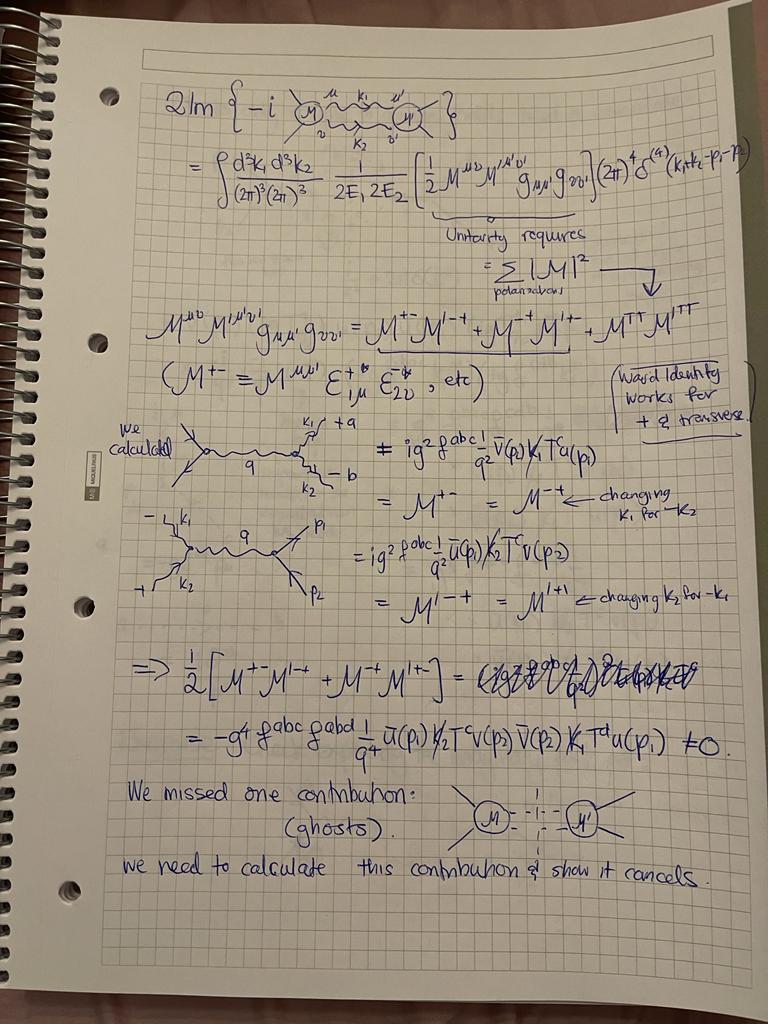 2Im { -i M μ k₁ μ' ν k₂ ν' M' }
= ∫ d³k₁ d³k₂ / (2π)³(2π)³ 1 / 2E₁ 2E₂ [ 1/2 M^{μν} M'^{μ'ν'} g_{μμ'} g_{νν'} ] (2π)⁴ δ^{(4)} (k₁+k₂-p₁-p₂)
Unitarity requires
= Σ |M|²
polarizations
M^{μν} M'^{μ'ν'} g_{μμ'} g_{νν'} = M^{+-} M'^{-+} + M^{-+} M'^{+-} + M^{TT} M'^{TT}
(M^{+-} ≡ M^{μν} ε^{+*}_{1μ} ε^{-*}_{2ν}, etc)
(Ward Identity
works for
+ & transverse.)
we
calculated q k₁ + a k₂ - b = ig² f^{abc} 1/q² v̄(p₂) k̸₁ T^c u(p₁)
= M^{+-} = M^{-+} ← changing
k₁ for -k₂
- k₁ q p₁ + k₂ p₂ = ig² f^{abc} 1/q² ū(p₁) k̸₂ T^c v(p₂)
= M'^{-+} = M'^{+1} ← changing k₂ for -k₁
=> 1/2 [ M^{+-} M'^{-+} + M^{-+} M'^{+-} ] =
= -g⁴ f^{abc} f^{abd} 1/q⁴ ū(p₁) k̸₂ T^c v(p₂) v̄(p₂) k̸₁ T^d u(p₁) ≠ 0.
We missed one contribution:
(ghosts). M M'
we need to calculate this contribution & show it cancels.
MIQUELRIUS